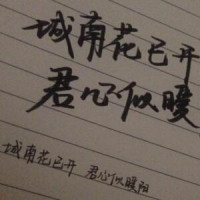 城南花已开
君心似暖
城南花已开 君心似暖阳